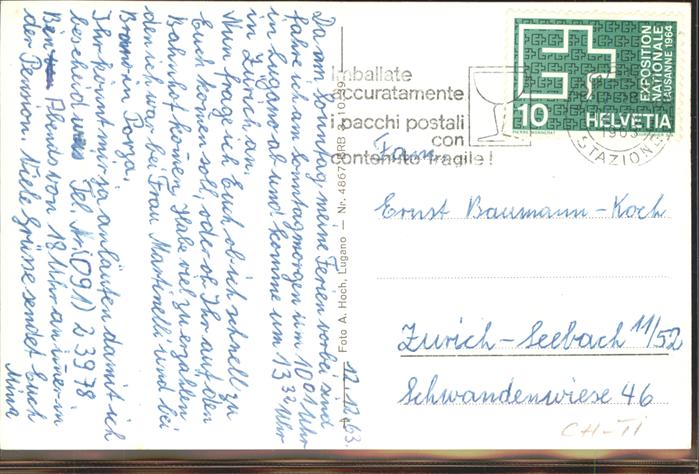 12.12.63.
Da am Sonntag meine Ferien vorbei sind
fahre ich am Sonntagmorgen um 10 01 Uhr
in Lugano ab und komme um 13 32 Uhr
in Zürich an.
Nun frage ich Euch ob ich schnell zu
Euch kommen soll, oder ob Ihr auf den
Bahnhof kommen. Habe viel zu erzählen
denn ich war bei Frau Martinelli und bei
in Porza.
Ihr könnt mir ja anläuten damit ich
bescheid weis Tel. Nr. (091) 2 39 78
Bin Abends von 18 Uhr an immer in
der Pension. Viele Grüsse sendet Euch
Mina
Foto A. Hoch, Lugano — Nr. 4867
Imballate
accuratamente
i pacchi postali
con
contenuto fragile!
EXPOSITION
NATIONALE
LAUSANNE 1964
10 HELVETIA
STAZIONE
Fam.
Ernst Baumann-Koch
Zürich-Seebach 11/52
Schwandenwiese 46
CH-TI